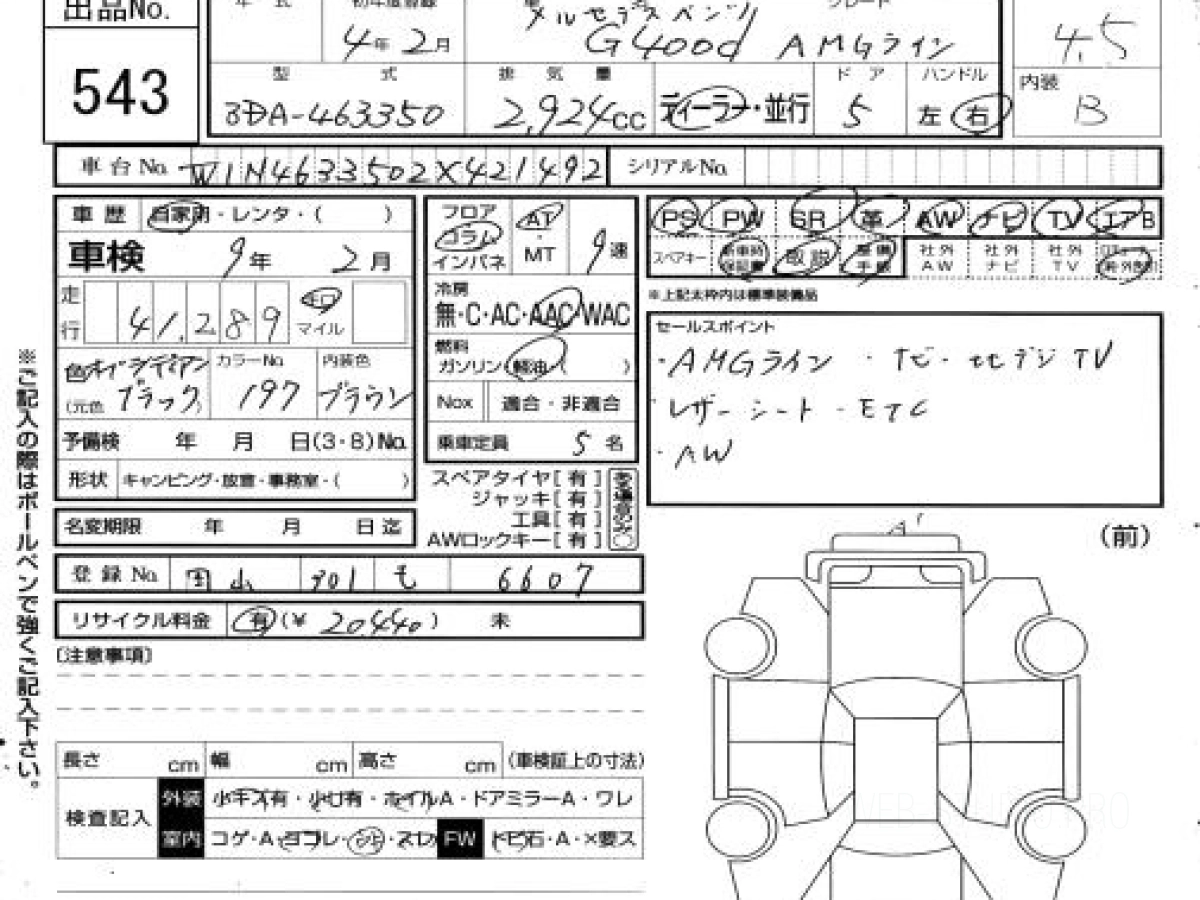 出品No.
543
年 式 初年度登録 車 グレード
4年2月 メルセデスベンツ
G400d AMGライン
4.5
型 式 排 気 量 ドア ハンドル
3DA-463350 2,924cc ディーラー・並行 5 左 右
内装
B
車台No. W1N4633502X421492 シリアルNo.
車歴 自家用・レンタ・( )
車検 9年 2月
走行 41,289 キロ マイル
色 オブシディアンブラック (元色 )
カラーNo 197
内装色 ブラウン
予備検 年 月 日(3・8)No.
形状 キャンピング・放宣・事務室・( )
名変期限 年 月 日迄
フロア コラム インパネ
AT・MT 9速
冷房
無・C・AC・AAC・WAC
燃料
ガソリン・軽油・( )
Nox 適合・非適合
乗車定員 5名
スペアタイヤ[有]
ジャッキ[有]
工具[有]
AWロックキー[有]
ある場合のみ○
PS PW SR 革 AW ナビ TV エアB
スペアキー 新車時保証書 取説 整備手帳 社外AW 社外ナビ 社外TV
※上記太枠内は標準装備品
セールスポイント
・AMGライン ・ナビ・地デジTV
・レザーシート・ETC
・AW
登録No. 301 も 6607
リサイクル料金 有(¥ 20,440) 未
〔注意事項〕
長さ cm 幅 cm 高さ cm (車検証上の寸法)
検査記入
外装 小キズ有・小凹有・ホイルA・ドアミラーA・ワレ
室内 コゲ・A・ヨゴレ・シミ・スレ FW トビ石・A・×要ス
(前)
A1
※ご記入の際はボールペンで強くご記入下さい。